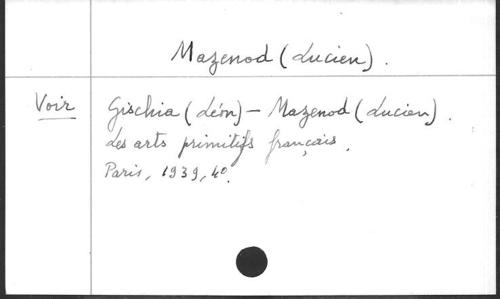 Mazenod (Lucien).
Voir Gischia (Léon) - Mazenod (Lucien).
Les arts primitifs français.
Paris, 1939, 4º.